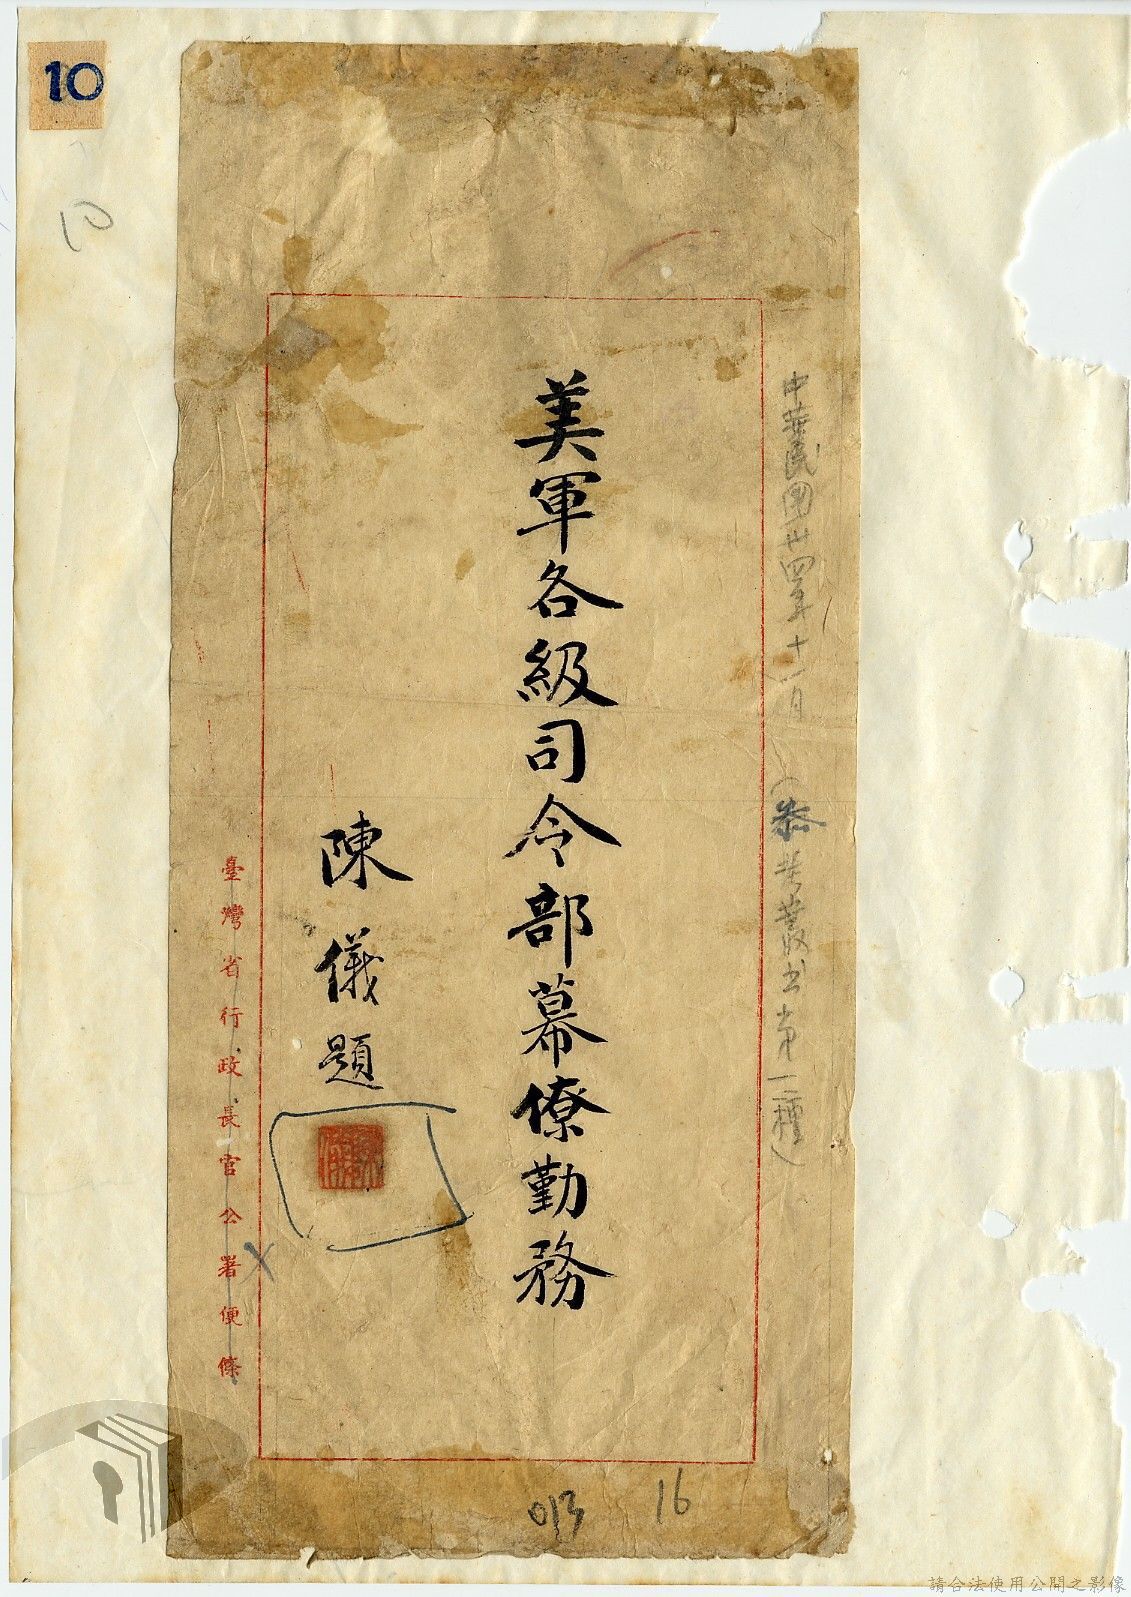 10
中華民國卅四年十一月
(參考叢书第二種)
美軍各級司令部幕僚勤務
陳儀題
臺灣省行政長官公署便條
013
16
請合法使用公開之影像